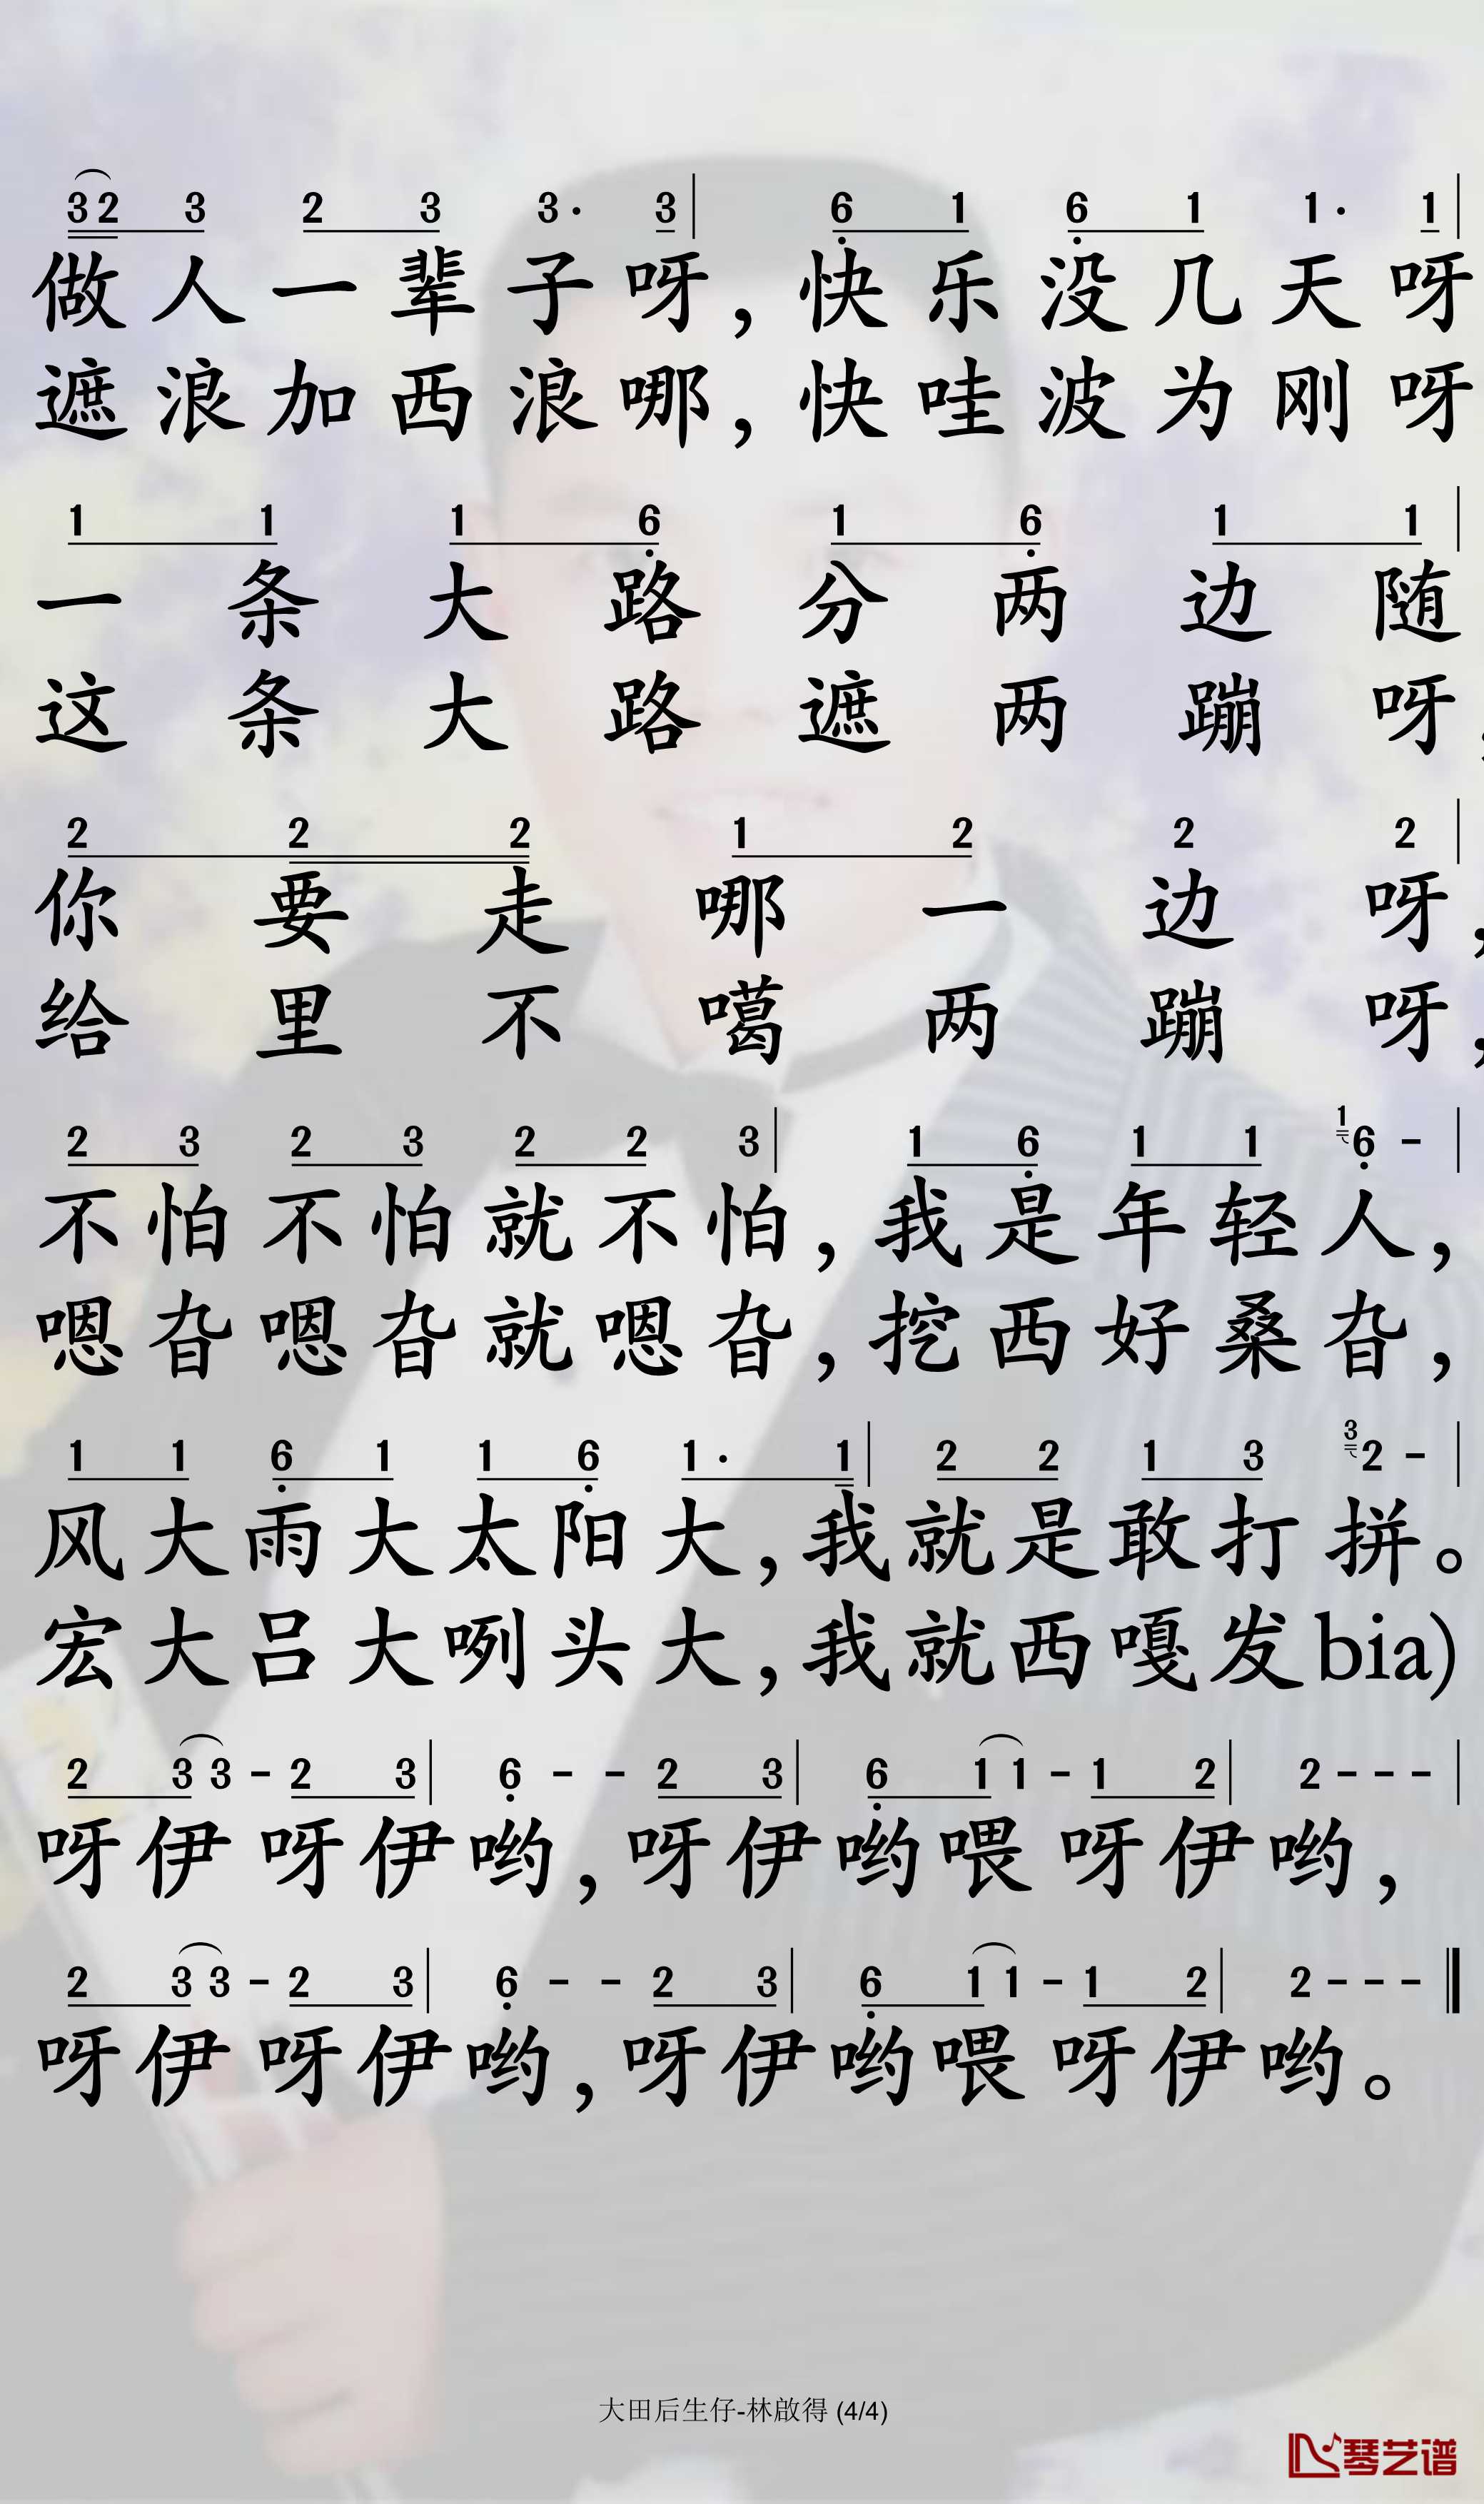 32 3 2 3 3· 3 | 6 1 6 1 1· 1 |
做人一辈子呀，快乐没几天呀
遮浪加西浪哪，快哇波为刚呀
1 1 1 6 1 6 1 1 |
一条大路分两边随
这条大路遮两蹦呀，
2 2 2 1 2 2 2 |
你要走哪一边呀，
给里不噶两蹦呀，
2 3 2 3 2 2 3 | 1 6 1 1 1 6 - |
不怕不怕就不怕，我是年轻人，
嗯旮嗯旮就嗯旮，挖西好桑旮，
1 1 6 1 1 6 1· 1 | 2 2 1 3 3 2 - |
风大雨大太阳大，我就是敢打拼。
宏大吕大咧头大，我就西嘎发bia)
2 3 3 - 2 3 | 6 - - 2 3 | 6 1 1 - 1 2 | 2 - - - |
呀伊 呀伊哟，呀伊哟喂 呀伊哟，
2 3 3 - 2 3 | 6 - - 2 3 | 6 1 1 - 1 2 | 2 - - - ‖
呀伊 呀伊哟，呀伊哟喂 呀伊哟。
大田后生仔-林啟得 (4/4)
琴艺谱